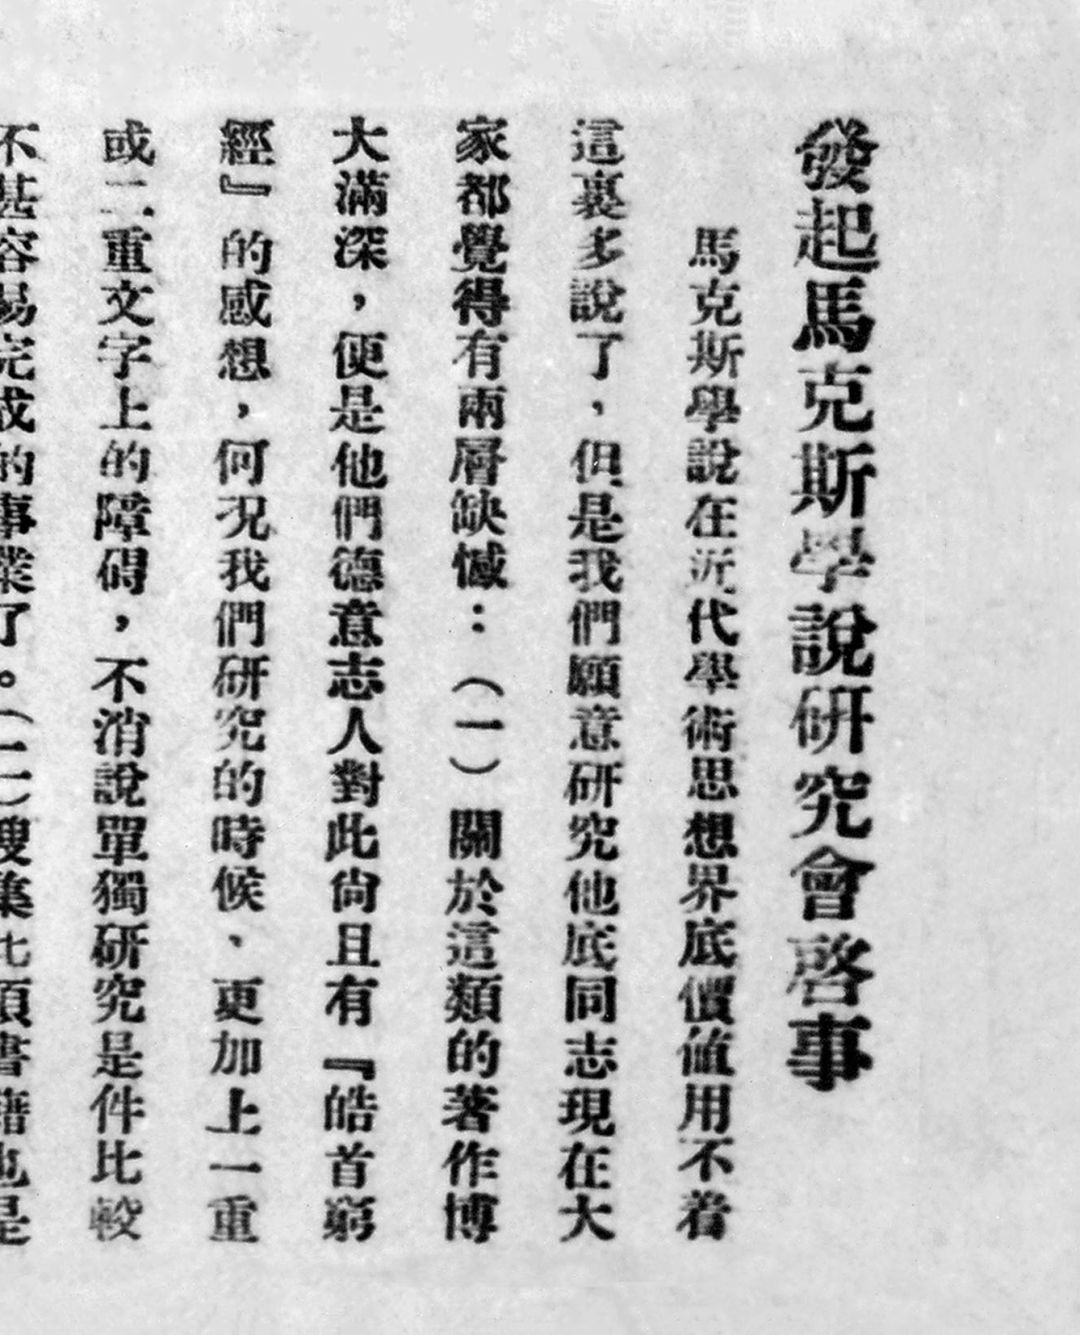 發起馬克斯學說研究會啓事
馬克斯學說在近代學術思想界底價値用不着
這裏多說了，但是我們願意研究他底同志現在大
家都覺得有兩層缺憾：（一）關於這類的著作博
大滿深，便是他們德意志人對此尙且有『皓首窮
經』的感想，何况我們研究的時候、更加上一重
或二重文字上的障碍，不消說單獨研究是件比較
不甚容易完成的事業了。（二）搜集此項書籍也是